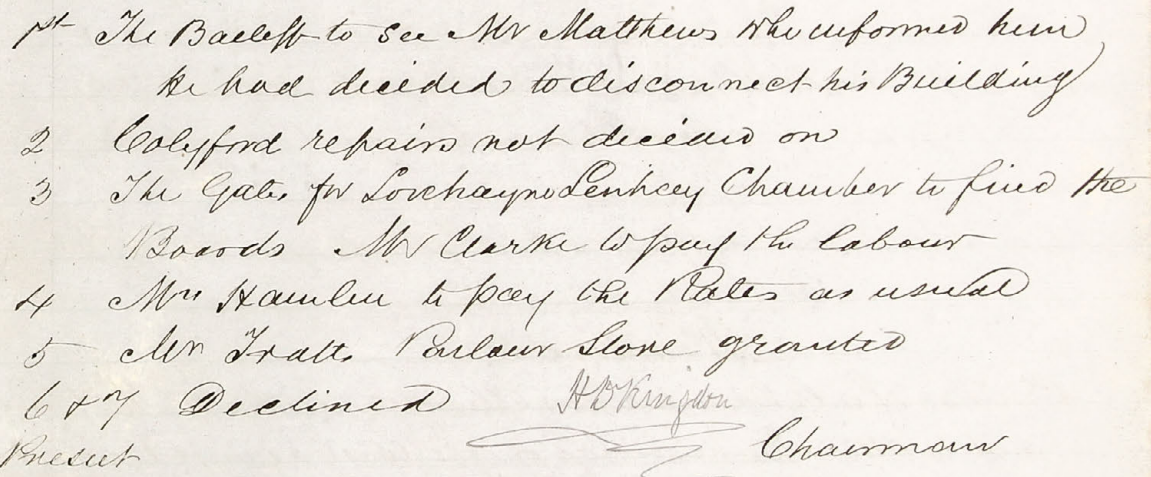 1st The Baeliff to see Mr Matthews who informed him
he had decided to disconnect his Building
2 Colyford repairs not decided on
3 The Gates for Lovehayne Chamber to find the
Boards Mr Clarke to pay the labour
4 Mrs Hamlin to pay the Rates as usual
5 Mr Tratts Parlour Stove granted
6 & 7 Declined H B Kingdon
Present Chairman